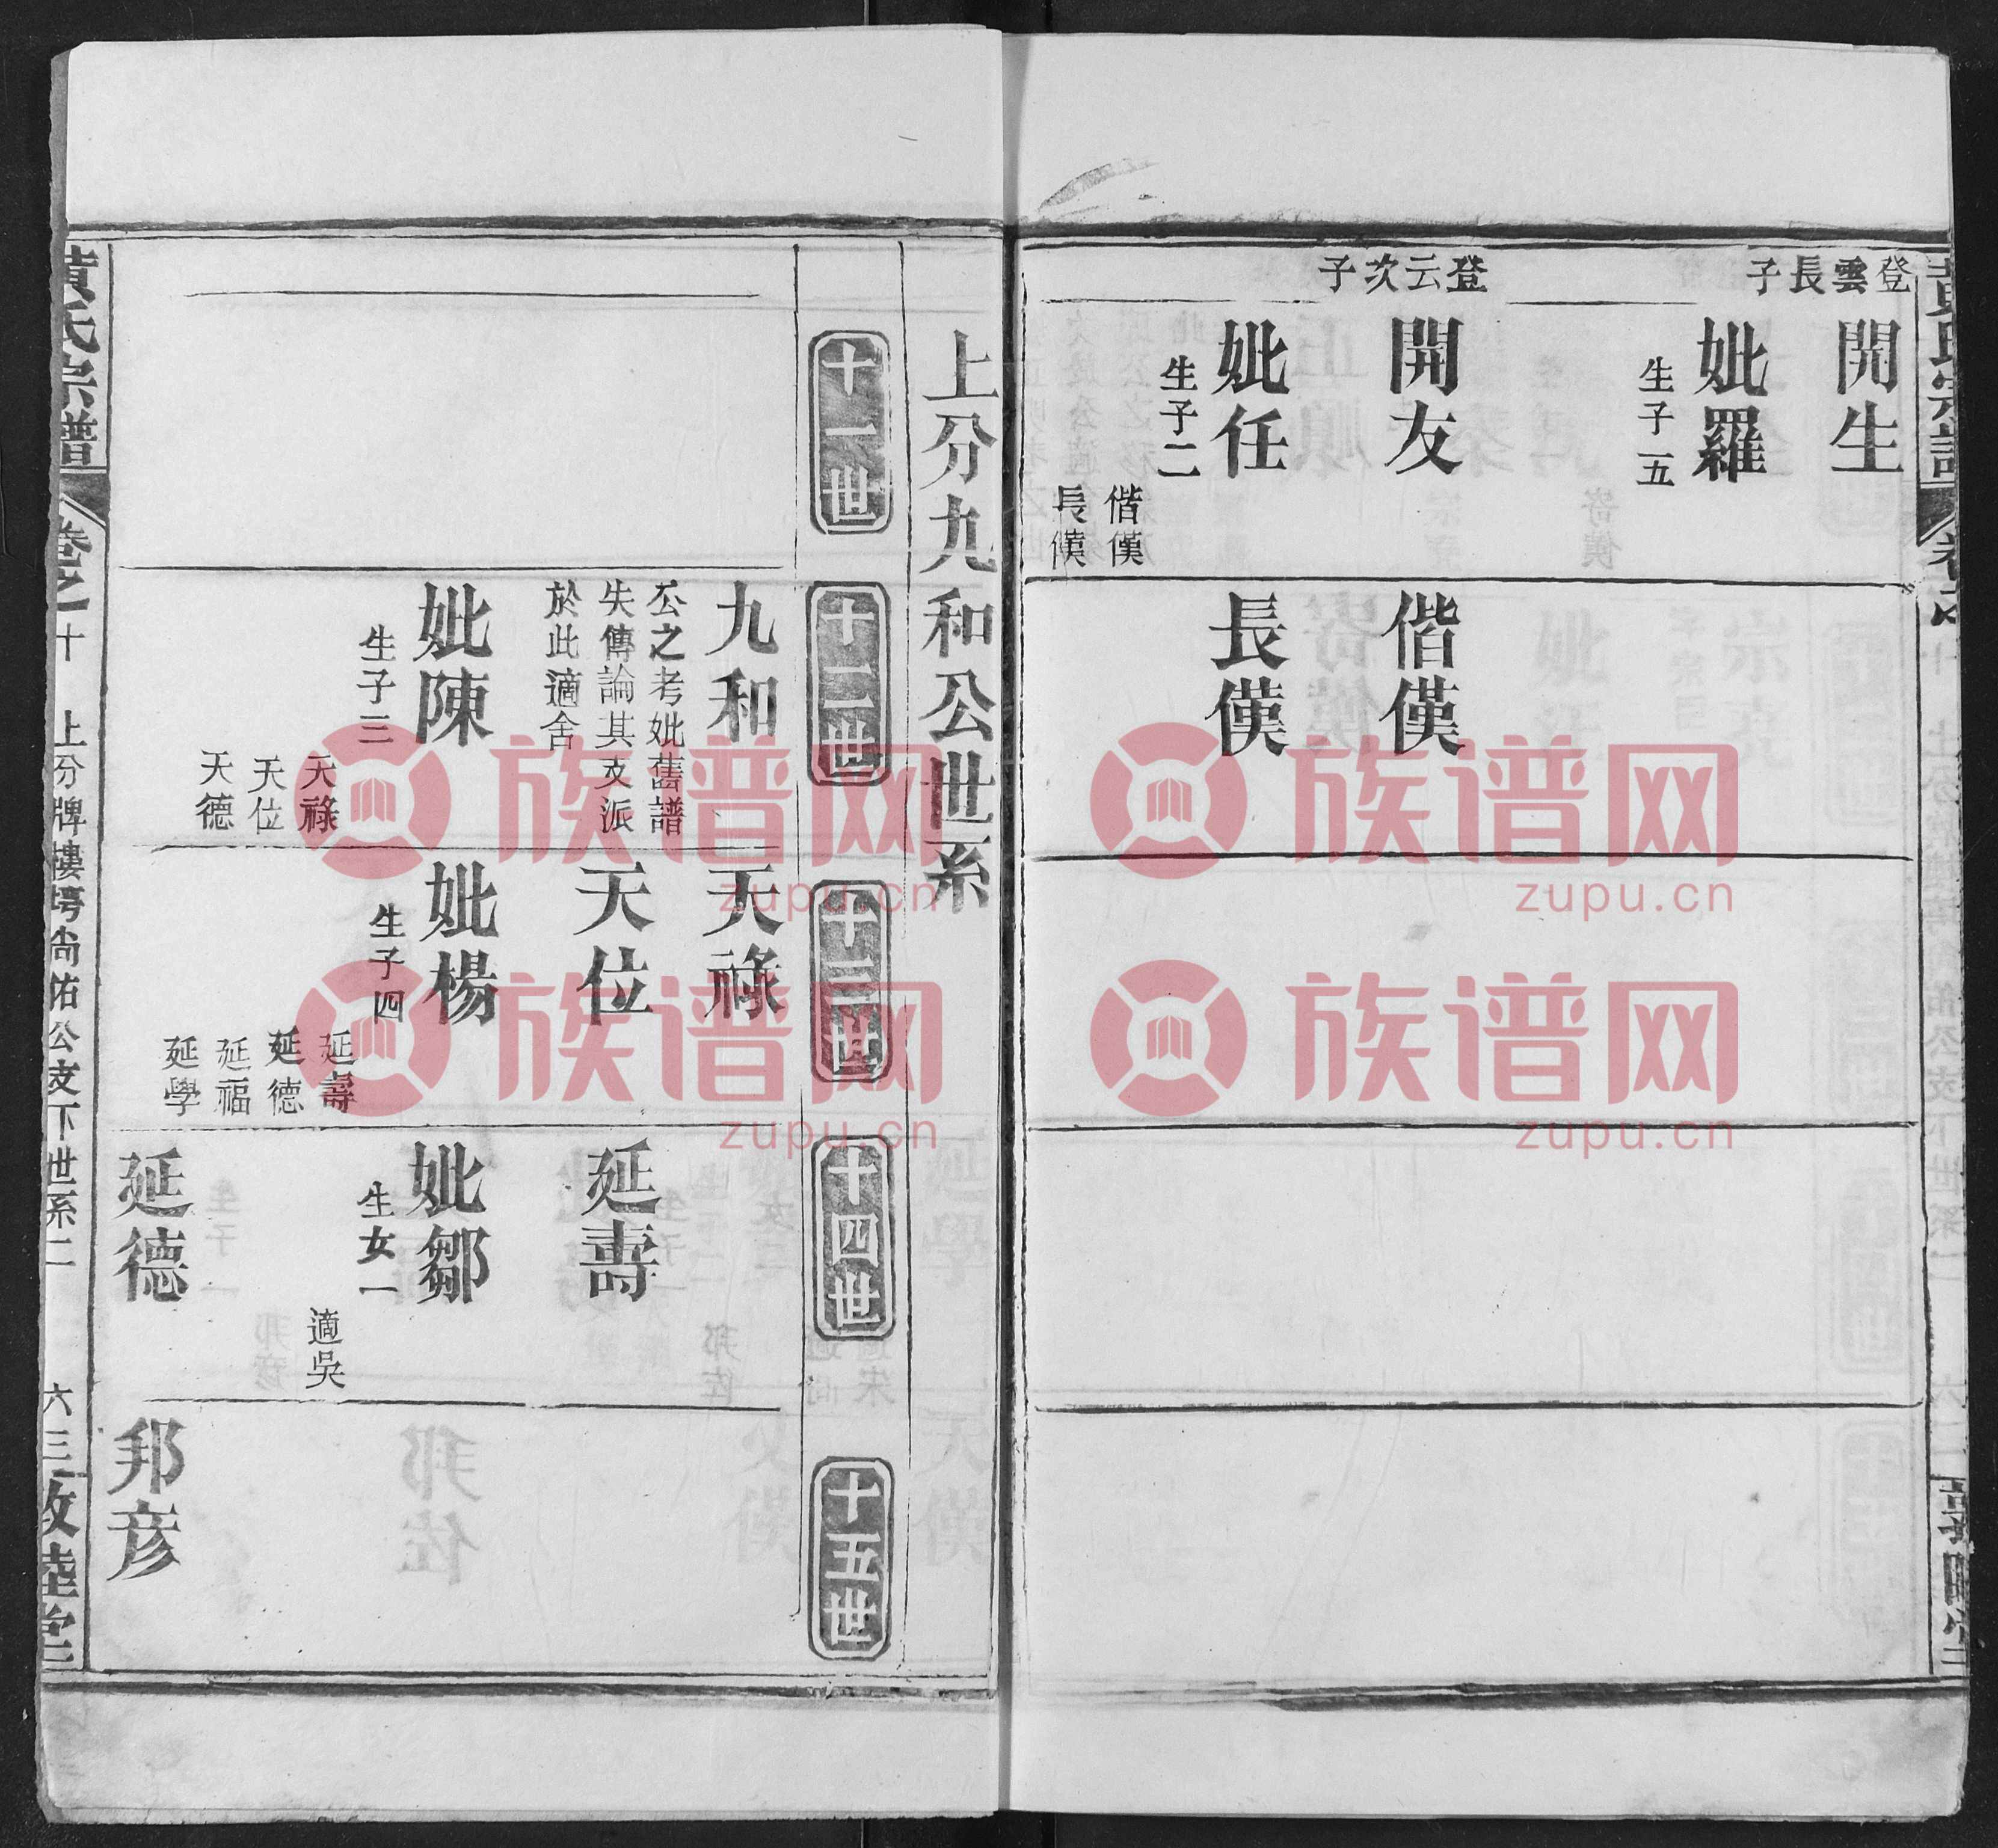 登雲長子
開生
妣羅
生子五
登云次子
開友
妣任
生子二
偕僕
長僕
偕僕
長僕
上分九和公世系
十一世
十二世
十三世
十四世
十五世
九和
公之考妣舊譜
失傳論其支派
於此適舍
妣陳
生子三
天祿
天位
天德
天祿
天位
妣楊
生子四
延壽
延德
延福
延學
延壽
妣鄒
生女一
適吳
延德
邦彥
黃氏宗譜
卷之十
上分牌樓塆尚佑公支下世系二
六三
敦睦堂
族谱网
zupu.cn
族谱网
zupu.cn
族谱网
zupu.cn
族谱网
zupu.cn